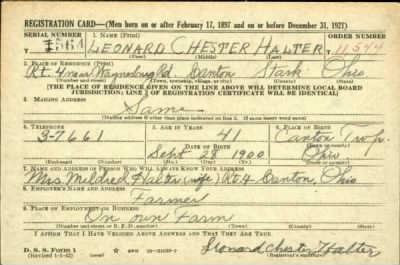 REGISTRATION CARD—(Men born on or after February 17, 1897 and on or before December 31, 1921)
SERIAL NUMBER 1. NAME (Print) ORDER NUMBER
1564 LEONARD CHESTER HALTER T 11,544
(First) (Middle) (Last)
2. PLACE OF RESIDENCE (Print)
Rt. 4 near Waynesburg Rd. Canton Stark Ohio
(Number and street) (Town, township, village, or city) (County) (State)
[THE PLACE OF RESIDENCE GIVEN ON THE LINE ABOVE WILL DETERMINE LOCAL BOARD
JURISDICTION; LINE 2 OF REGISTRATION CERTIFICATE WILL BE IDENTICAL]
3. MAILING ADDRESS
Same
(Mailing address if other than place indicated on line 2. If same insert word same)
4. TELEPHONE 5. AGE IN YEARS 6. PLACE OF BIRTH
3-7661 41 Canton Twp.
DATE OF BIRTH (Town or county)
Sept 28 1900 Ohio
(Exchange) (Number) (Mo.) (Day) (Yr.) (State or country)
7. NAME AND ADDRESS OF PERSON WHO WILL ALWAYS KNOW YOUR ADDRESS
Mrs Mildred Halter (wife) Rt. 4 Canton, Ohio
8. EMPLOYER'S NAME AND ADDRESS
Farmer
9. PLACE OF EMPLOYMENT OR BUSINESS
On own Farm
(Number and street or R. F. D. number) (Town) (County) (State)
I AFFIRM THAT I HAVE VERIFIED ABOVE ANSWERS AND THAT THEY ARE TRUE.
D. S. S. Form 1
(Revised 1-1-42) GPO 16-21630-2 Leonard Chester Halter
(Registrant's signature)